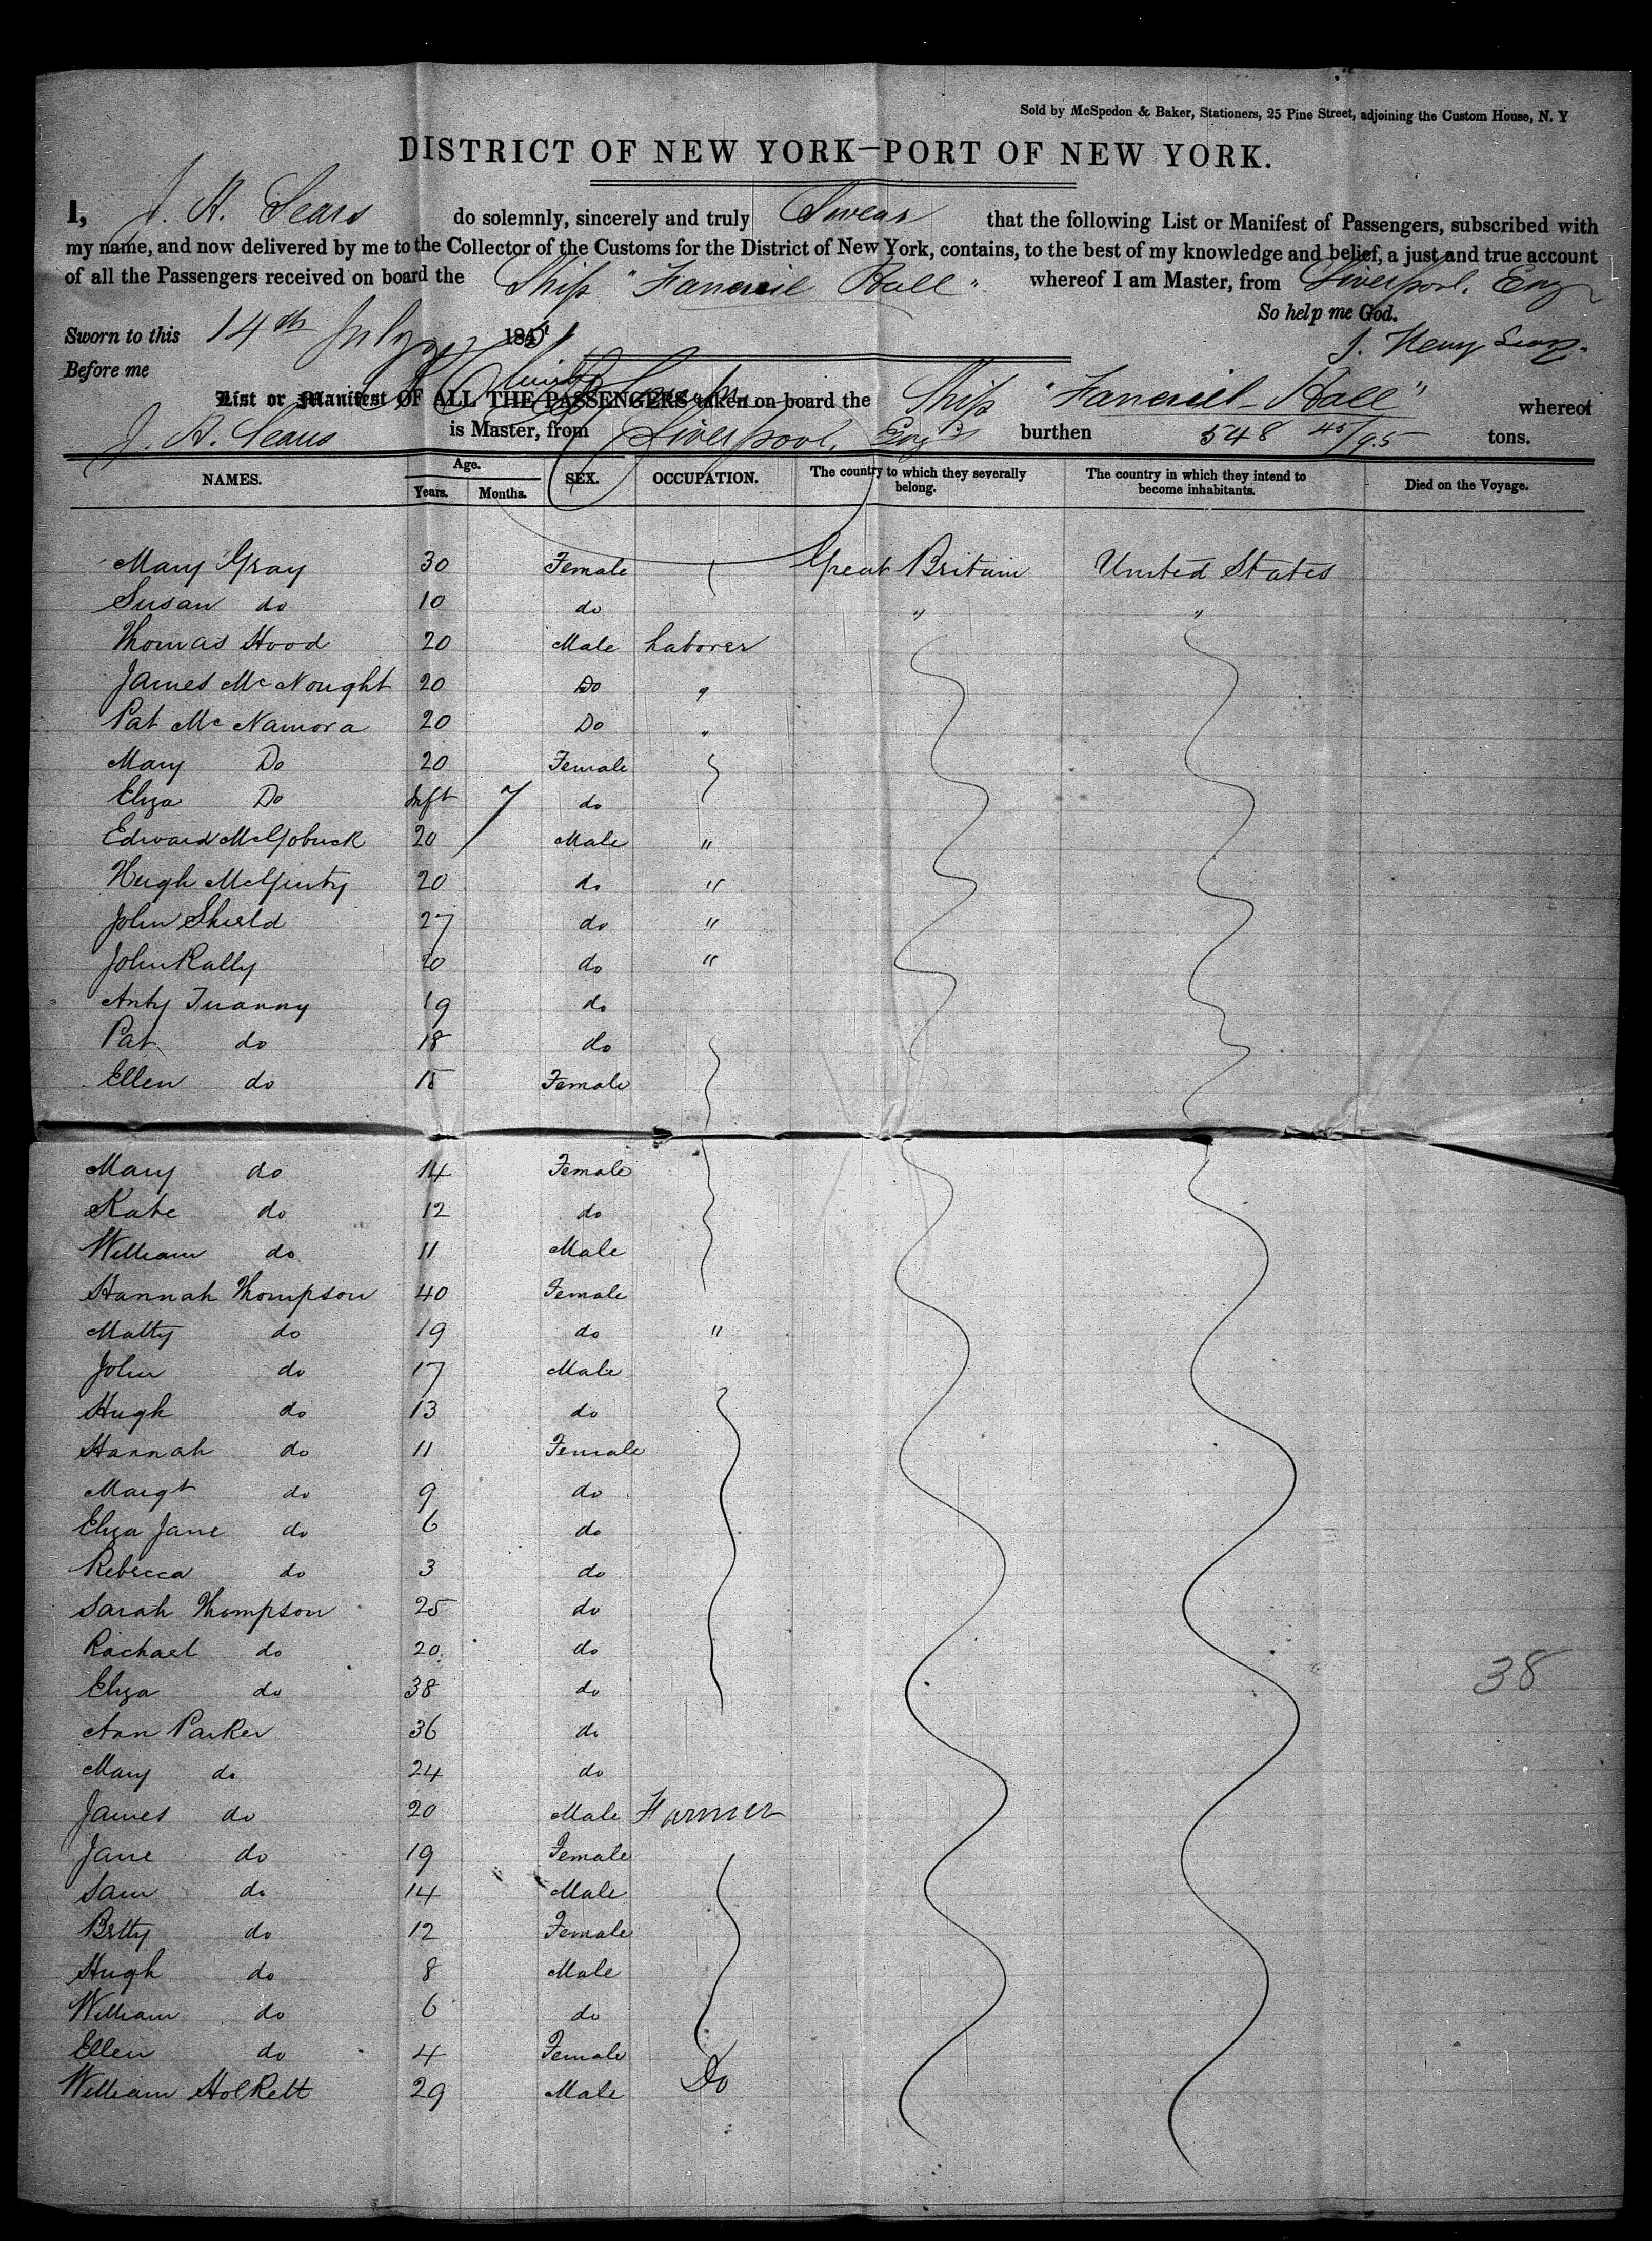 Sold by McSpedon & Baker, Stationers, 25 Pine Street, adjoining the Custom House, N. Y
DISTRICT OF NEW YORK—PORT OF NEW YORK.
I, J. H. Sears do solemnly, sincerely and truly Swear that the following List or Manifest of Passengers, subscribed with
my name, and now delivered by me to the Collector of the Customs for the District of New York, contains, to the best of my knowledge and belief, a just and true account
of all the Passengers received on board the Ship "Faneuil Hall" whereof I am Master, from Liverpool, Eng
So help me God.
Sworn to this 14th July 184
J. Henry Sears
Before me
List or Manifest OF ALL THE PASSENGERS taken on board the Ship "Faneuil Hall" whereof
J. H. Sears is Master, from Liverpool, Eng burthen 548 45/95 tons.
NAMES. Age. Years. Months. SEX. OCCUPATION. The country to which they severally belong. The country in which they intend to become inhabitants. Died on the Voyage.
Mary Gray 30 Female Great Britain United States
Susan do 10 do " "
Thomas Hood 20 Male Laborer
James McNought 20 Do "
Pat McNamora 20 Do "
Mary Do 20 Female
Eliza Do Inft 7 do
Edward 20 Male "
Hugh McGinty 20 do "
John Shield 27 do "
John Rally 20 do "
Anty 19 do
Pat do 18 do
Ellen do 15 Female
Mary do 14 Female
Kate do 12 do
William do 11 Male
Hannah Thompson 40 Female
Matty do 19 do "
John do 17 Male
Hugh do 13 do
Hannah do 11 Female
Margt do 9 do
Eliza Jane do 6 do
Rebecca do 3 do
Sarah Thompson 25 do
Rachael do 20 do
Eliza do 38 do
38
Ann Parker 36 do
Mary do 24 do
James do 20 Male Farmer
Jane do 19 Female
Sam do 14 Male
Betty do 12 Female
Hugh do 8 Male
William do 6 do
Ellen do 4 Female
William Holkett 29 Male Do